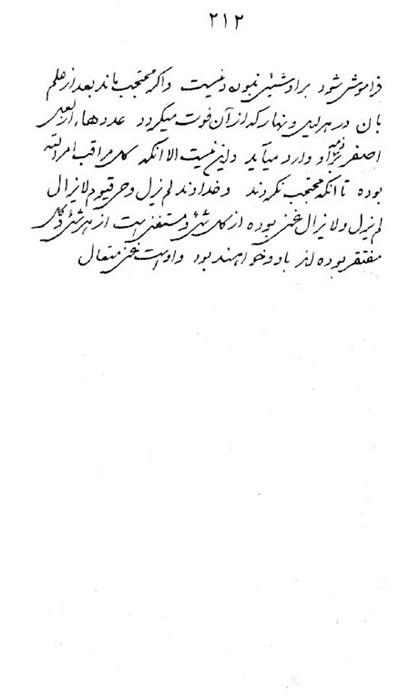 ۲۱۲
فراموش شود بر او شیئی نبوده و نیست و اگر محتجب ماند بعد از علم
بان در هر لیل و نهار که از آن فوت میگردد عدد هاء از لعل
اصفر بر ذمه او وارد میآید و این نیست الا انکه کل مراقب امر الله
بوده تا انکه محتجب نگردند و خداوند لم یزل و حی قیوم لا یزال
لم یزل و لا یزال غنی بوده از کل شئ و مستغنی است از هر شئ و کل
مفتقر بوده اند باو و خواهند بود و او است غنی متعال